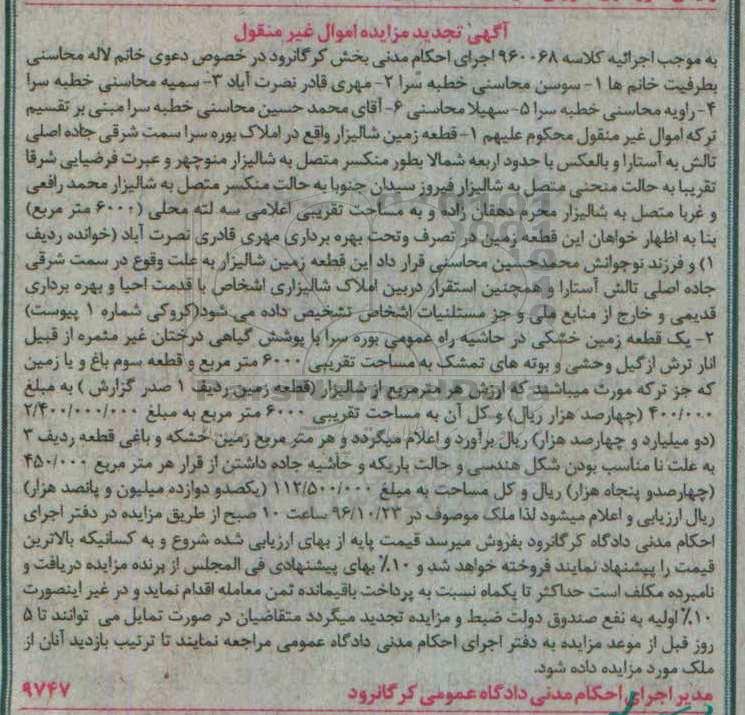 آگهی تجدید مزایده اموال غیر منقول
به موجب اجرائیه کلاسه ۹۶۰۰۶۸ اجرای احکام مدنی بخش کرگانرود در خصوص دعوی خانم لاله محاسنی
بطرفیت خانم ها ۱- سوسن محاسنی خطبه سرا ۲- مهری قادر نصرت آباد ۳- سمیه محاسنی خطبه سرا
۴- راویه محاسنی خطبه سرا ۵- سهیلا محاسنی ۶- آقای محمد حسین محاسنی خطبه سرا مبنی بر تقسیم
ترکه اموال غیر منقول محکوم علیهم ۱- قطعه زمین شالیزار واقع در املاک بوره سرا سمت شرقی جاده اصلی
تالش به آستارا و بالعکس با حدود اربعه شمالا بطور منکسر متصل به شالیزار منوچهر و عبرت فرضیایی شرقا
تقریبا به حالت منحنی متصل به شالیزار فیروز سیدان جنوبا به حالت منکسر متصل به شالیزار محمد رافعی
و غربا متصل به شالیزار محرم دهقان زاده و به مساحت تقریبی اعلامی سه لته محلی (۶۰۰۰ متر مربع)
بنا به اظهار خواهان این قطعه زمین در تصرف وتحت بهره برداری مهری قادری نصرت آباد (خوانده ردیف
۱) و فرزند نوجوانش محمدحسین محاسنی قرار داد این قطعه زمین شالیزار به علت وقوع در سمت شرقی
جاده اصلی تالش آستارا و همچنین استقرار دربین املاک شالیزاری اشخاص با قدمت احیا و بهره برداری
قدیمی و خارج از منابع ملی و جز مستثنیات اشخاص تشخیص داده می شود(کروکی شماره ۱ پیوست)
۲- یک قطعه زمین خشکی در حاشیه راه عمومی بوره سرا با پوشش گیاهی درختان غیر مثمره از قبیل
انار ترش ازگیل وحشی و بوته های تمشک به مساحت تقریبی ۶۰۰۰ متر مربع و قطعه سوم باغ و یا زمین
که جز ترکه مورث میباشد که ارزش هر مترمربع از شالیزار (قطعه زمین ردیف ۱ صدر گزارش ) به مبلغ
۴۰۰/۰۰۰ (چهارصد هزار ریال) و کل آن به مساحت تقریبی ۶۰۰۰ متر مربع به مبلغ ۲/۴۰۰/۰۰۰/۰۰۰
(دو میلیارد و چهارصد هزار) ریال برآورد و اعلام میگردد و هر متر مربع زمین خشکه و باغی قطعه ردیف ۳
به علت نا مناسب بودن شکل هندسی و حالت باریکه و حاشیه جاده داشتن از قرار هر متر مربع ۴۵۰/۰۰۰
(چهارصدو پنجاه هزار) ریال و کل مساحت به مبلغ ۱۱۲/۵۰۰/۰۰۰ (یکصدو دوازده میلیون و پانصد هزار)
ریال ارزیابی و اعلام میشود لذا ملک موصوف در ۹۶/۱۰/۲۳ ساعت ۱۰ صبح از طریق مزایده در دفتر اجرای
احکام مدنی دادگاه کرگانرود بفروش میرسد قیمت پایه از بهای ارزیابی شده شروع و به کسانیکه بالاترین
قیمت را پیشنهاد نمایند فروخته خواهد شد و ۱۰٪ بهای پیشنهادی فی المجلس از برنده مزایده دریافت و
نامبرده مکلف است حداکثر تا یکماه نسبت به پرداخت باقیمانده ثمن معامله اقدام نماید و در غیر اینصورت
۱۰٪ اولیه به نفع صندوق دولت ضبط و مزایده تجدید میگردد متقاضیان در صورت تمایل می توانند تا ۵
روز قبل از موعد مزایده به دفتر اجرای احکام مدنی دادگاه عمومی مراجعه نمایند تا ترتیب بازدید آنان از
ملک مورد مزایده داده شود.
مدیر اجرای احکام مدنی دادگاه عمومی کرگانرود
۹۷۴۷